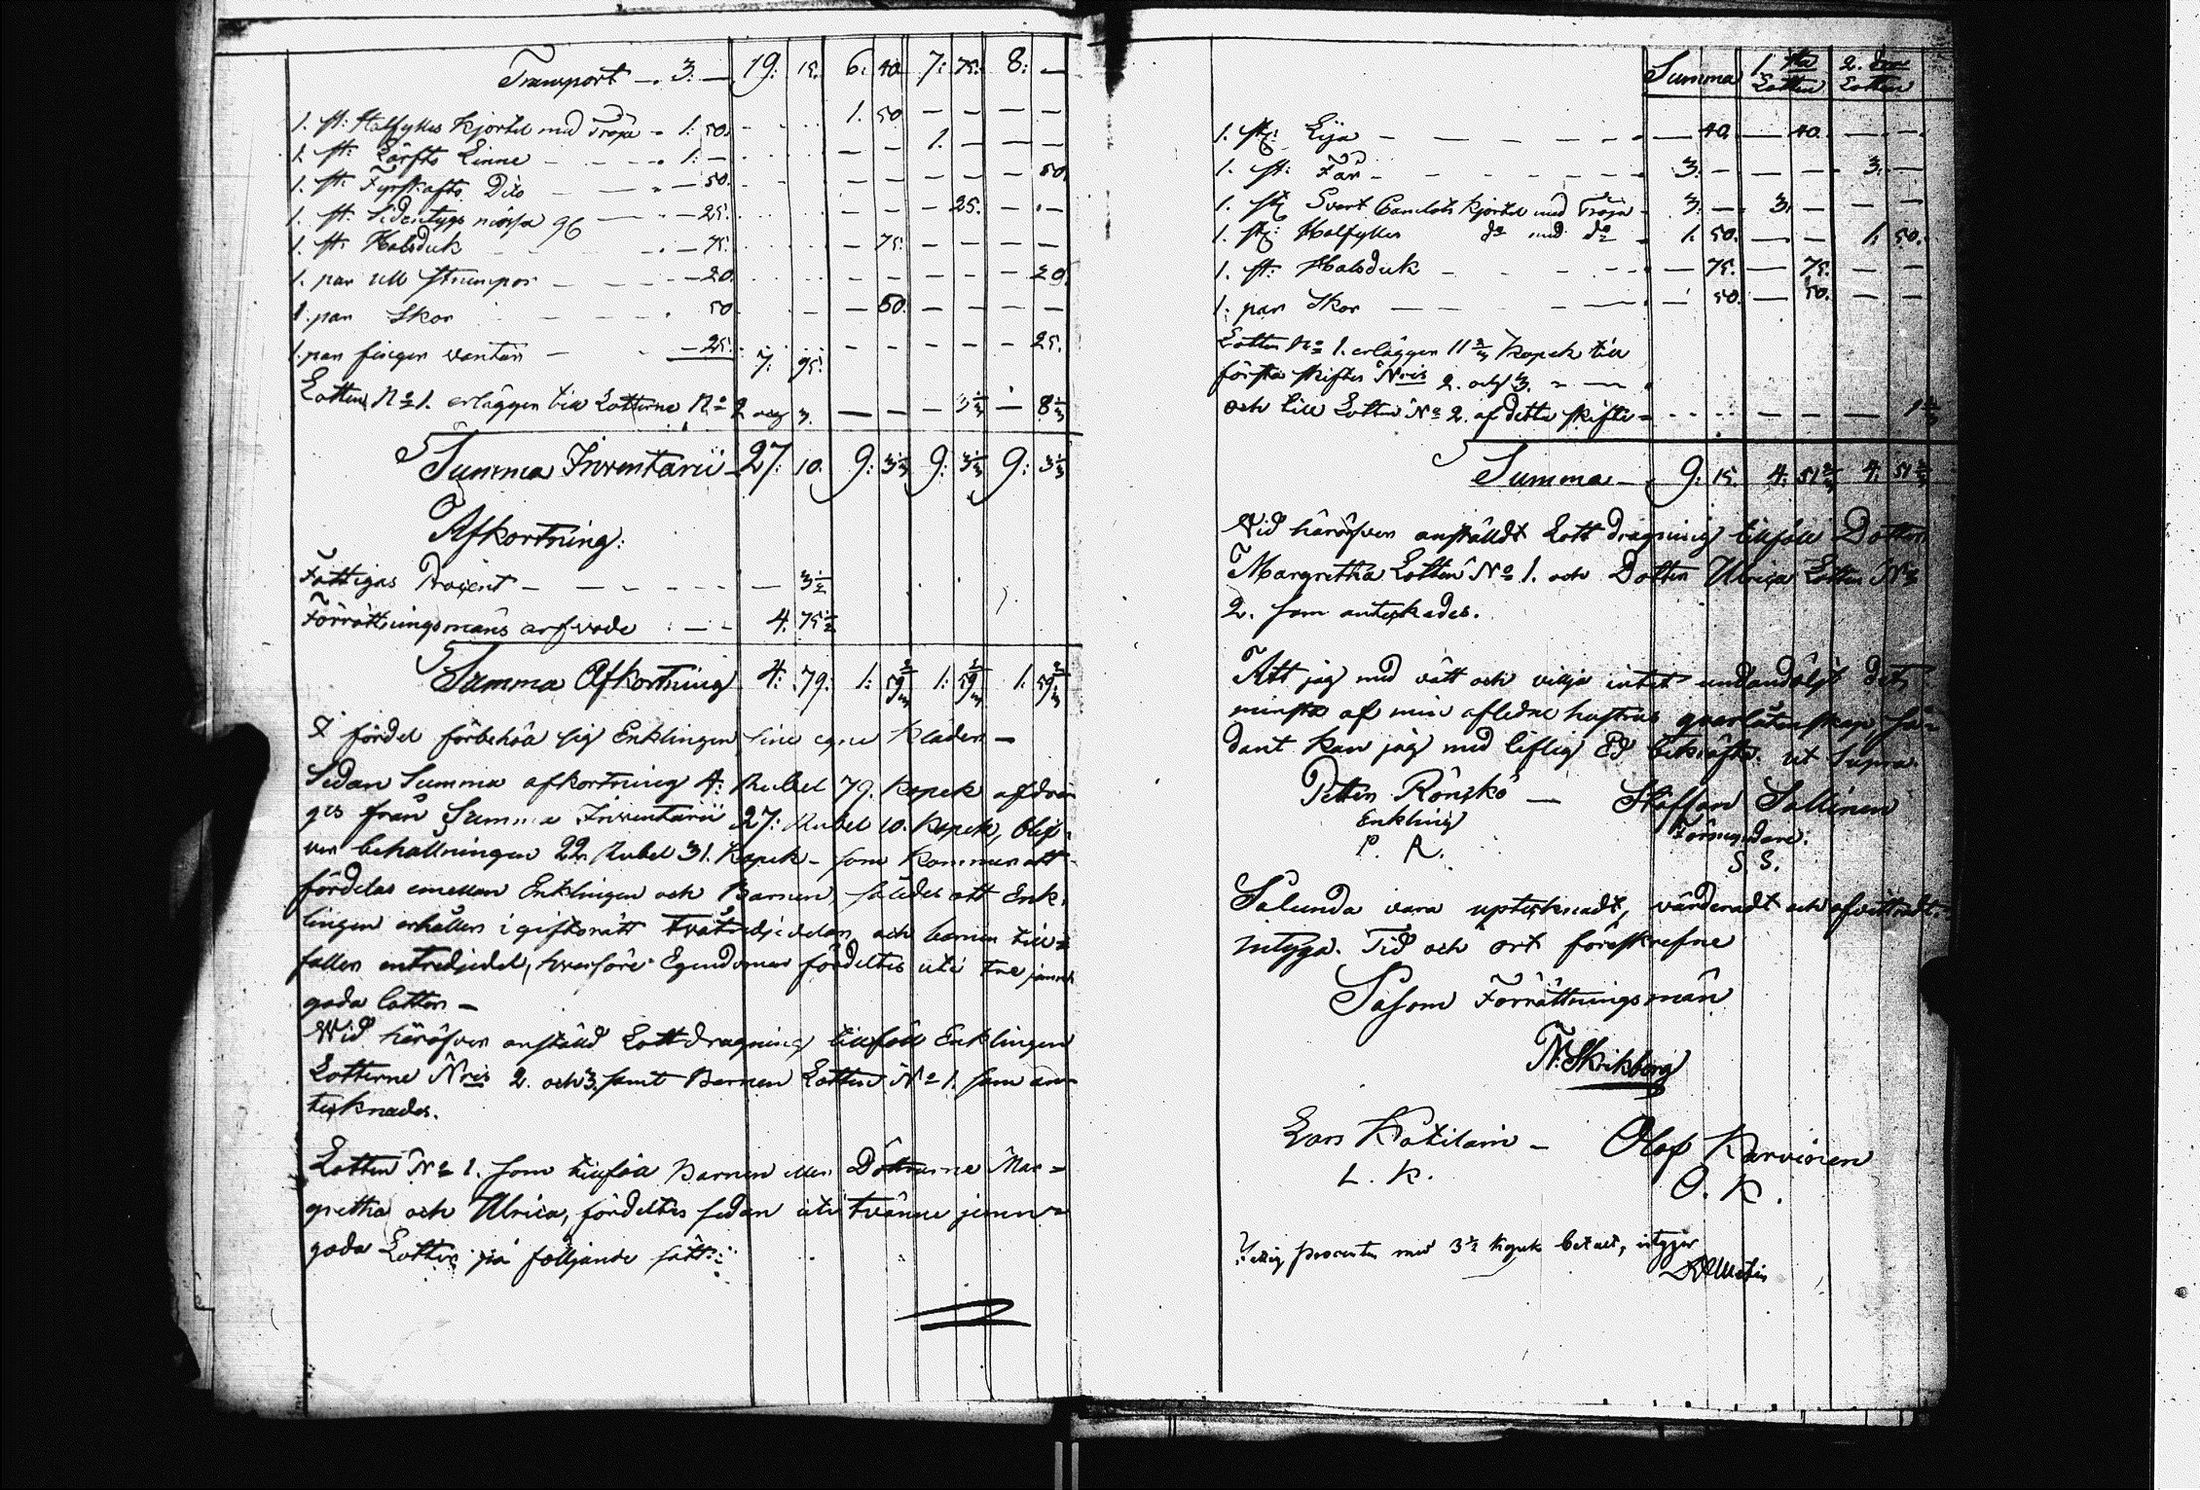 Transport — 3. — 19: 15. 6: 40 7: 75. 8: —
1. st: Halfylles Kjortel med Tröja - 1: 50. 1. 50 — — — —
1. st: Lärfts Linne - 1: — — — 1. — — —
1. st: Fyrskafts Dito - — 50. — — — — — 50.
1. st: Sidentygs mössa — 25. — — — 25. — —
1. st. Halsduk — 75. — 75. — — — —
1. par ull strumpor — 20. — — — — — 20.
1. par Skor 50 — 50. — — — —
1. par finger vantar — 25. 7: 95. — — — — — 25.
Lotten No 1. erlägger till Lotterne No 2 och 3. — — — 3 1/3 — 8 1/3
Summa Inventarii 27: 10. 9: 3 1/3 9: 3 1/3 9: 3 1/3
Afkortning:
Fattigas Procent — — 3 1/2
Förrättningsmäns arfvode 4. 75 1/2
Summa Afkortning 4: 79. 1: 59 2/3 1: 59 2/3 1: 59 2/3
I fördel förbehöll sig Enklingen sine egne kläder —
Sedan Summa afkortning 4: Rubel 79. Kopek afdra-
ges från Summa Inventarii 27: Rubel 10. Kopek, blif-
ver behållningen 22. Rubel 31. Kopek - som kommer att
fördelas emellan Enklingen och Barnen, således att Enk-
lingen erhåller i giftorätt tvåtredjedelar, och barnen till-
faller entredjedel, hvarföre Egendomen fördeltes uti tre jemn
goda lotter —
Wid häröfver anställd Lottdragning tillföll Enklingen
Lotterne Nris 2. och 3. samt Barnen Lotten No 1. som an-
tecknades.
Lotten No 1. som tillföll Barnen eller Döttrarne Mar-
gretha och Ulrica, fördeltes sedan uti tvänne jemn-
goda Lotter på följande sätt:
Summa 1. sta Lotten 2. dra Lotten
1. st: — 40. — 40. — —
1. st: Får — 3. — — — 3. —
1. st: Svart Camlots Kjortel med Tröja 3. — 3. — — —
1. st: Halfylles do med do 1. 50. — — 1. 50.
1. st: Halsduk — 75. — 75. — —
1. par Skor — 50. — 50. — —
Lotten No 1. erlägger 11 2/3 Kopek till
första skiftes Nris 2. och 3.
och till Lotten No 2. af detta skifte 1 2/3
Summa — 9: 15. 4. 51 2/3 4. 51 2/3
Wid häröfver anställdt Lottdragning tillföll Dottren
Margretha Lotten No 1. och Dotter Ulrica Lotten No
2. som antecknades.
Att jag med vett och vilja intet undandöljt det
minsta af min aflidne hustrus qvarlåtenskap, så-
dant kan jag med liflig Ed bekräfta. ut Supra.
Petter Rönkkö — Staffan Sallinen
Enkling Förmyndare:
P. R. S. S.
Sålunda vara uptecknadt, värderadt och afvittradt,
intyga. Tid och ort föreskrefne
Såsom Förrättningsmän
Lars — Olof Karvinen
L. K. O. K.
procenten med 3 1/2 Kopek betalt, intygar